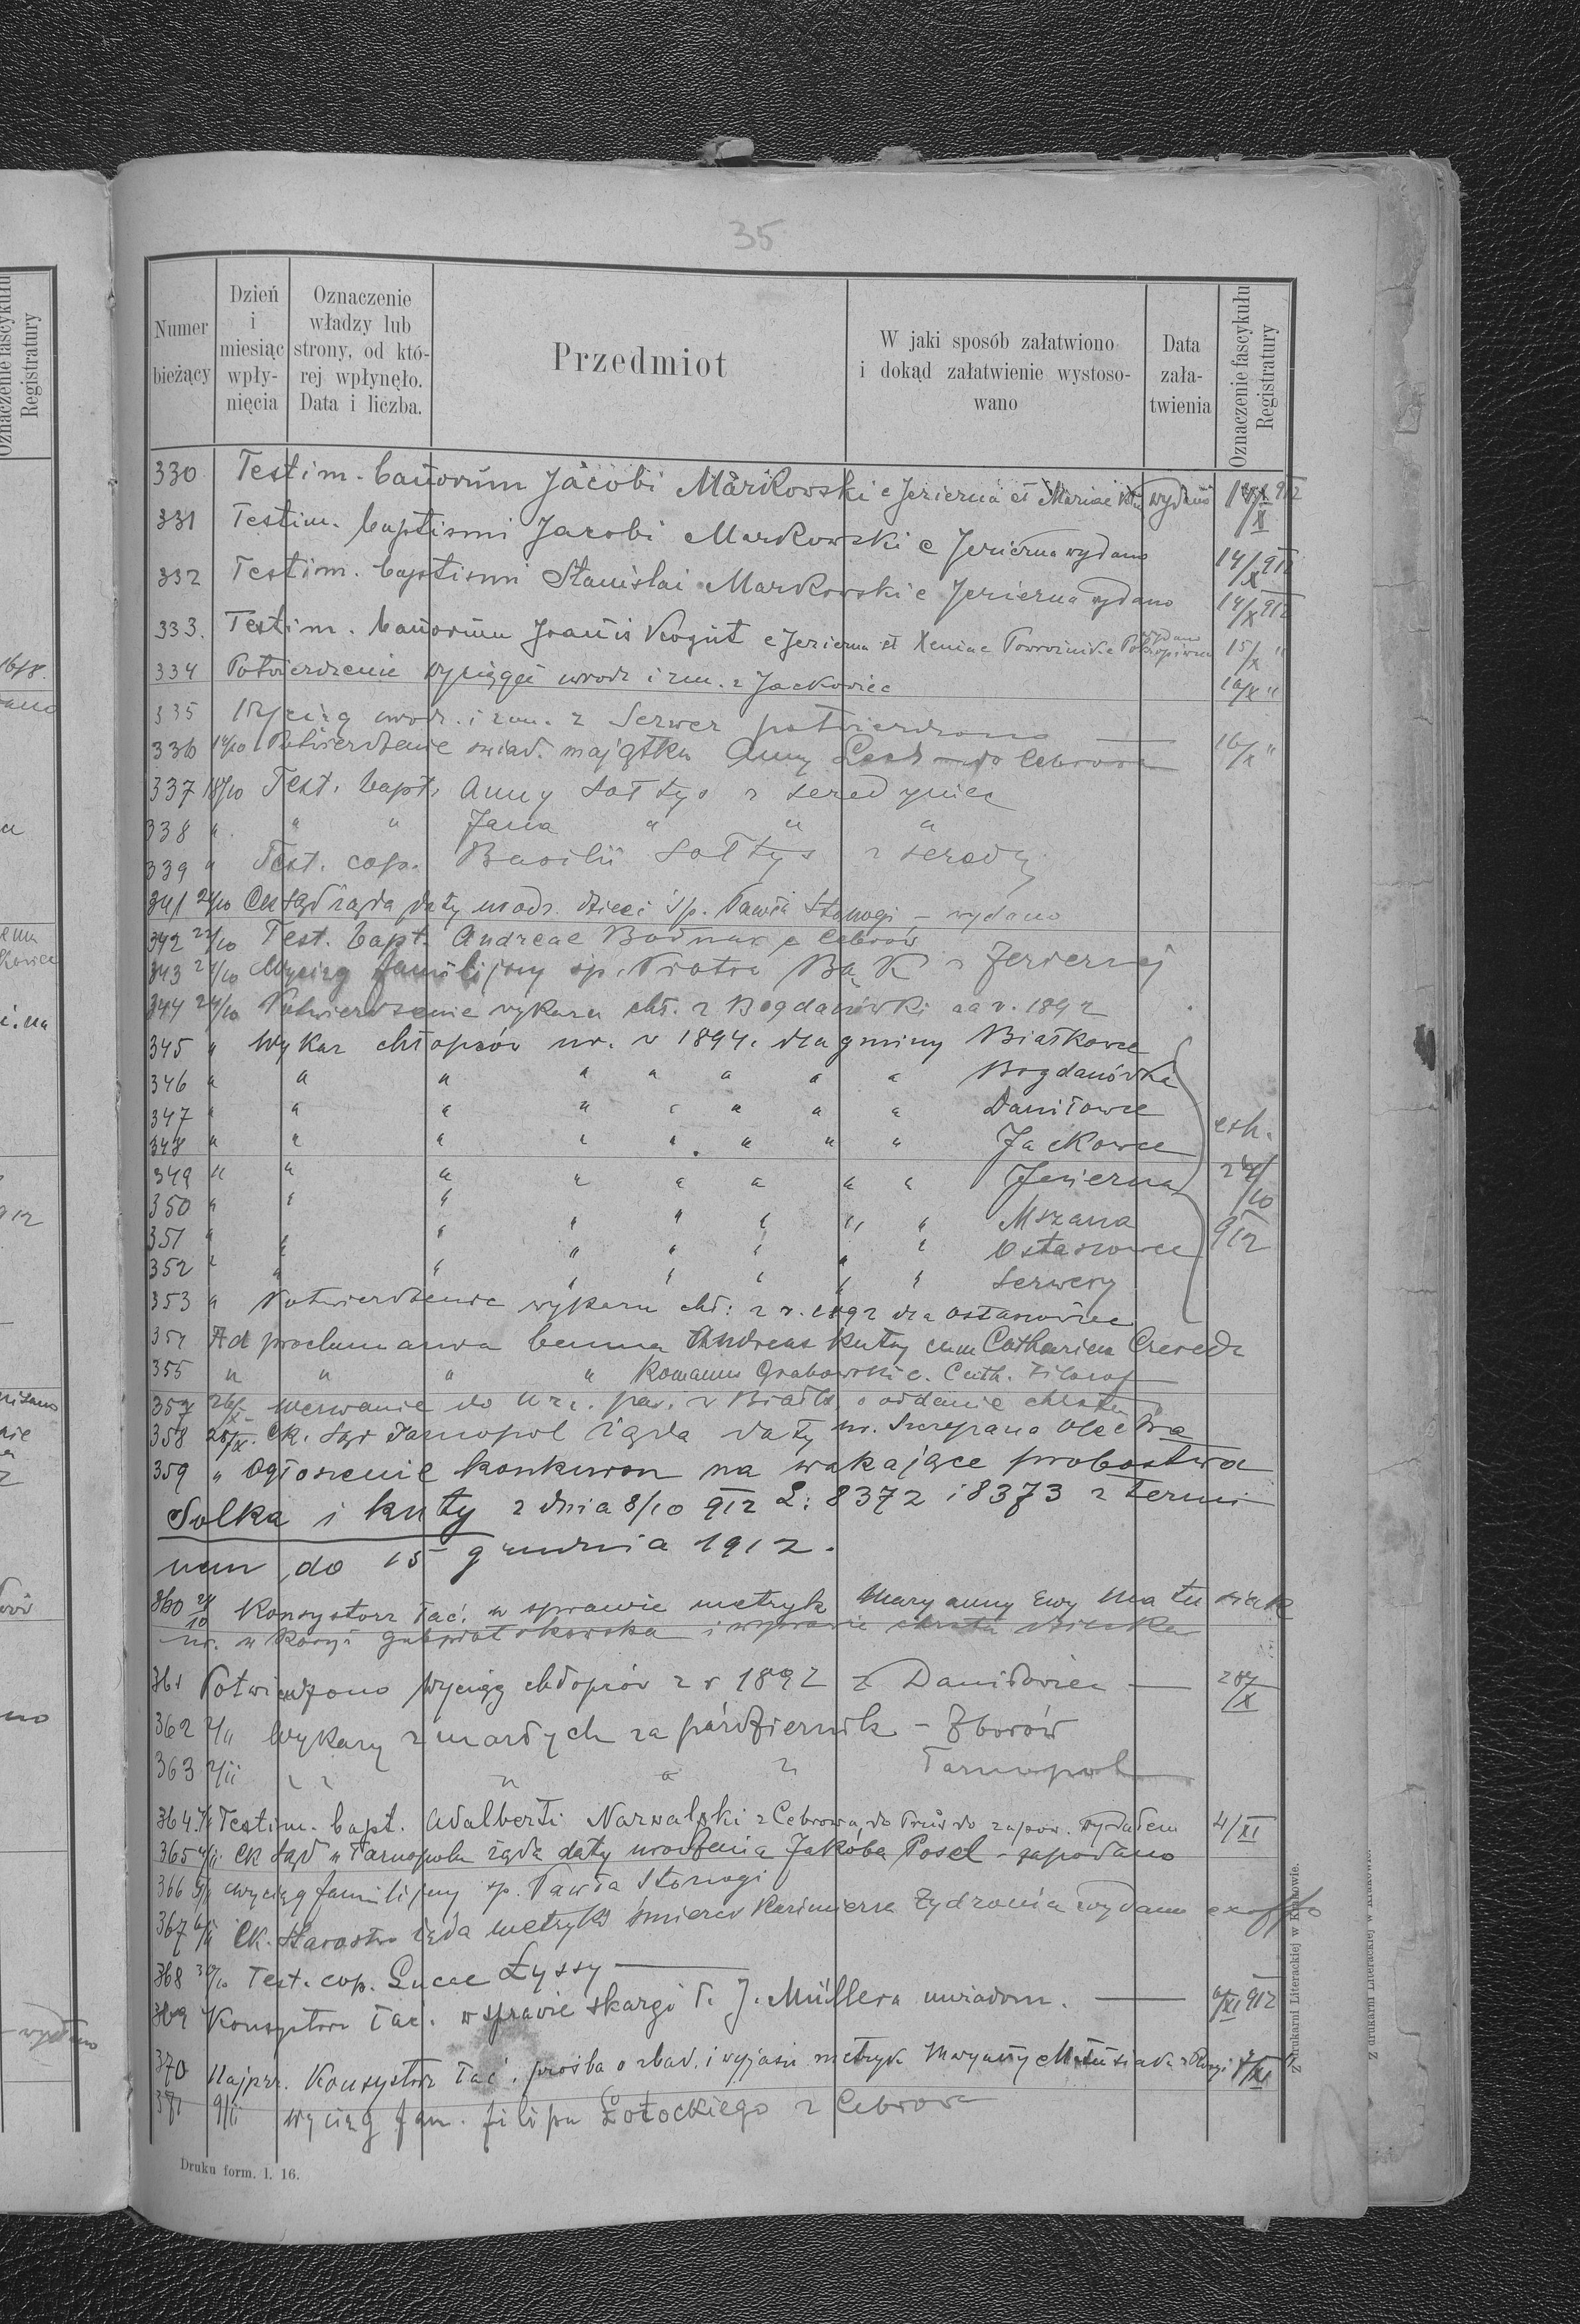 35
Numer bieżący
Dzień i miesiąc wpły-nięcia
Oznaczenie władzy lub strony, od któ-rej wpłynęło. Data i liczba.
Przedmiot
W jaki sposób załatwiono i dokąd załatwienie wystoso-wano
Data zała-twienia
Oznaczenie fascykułu Registratury
330 Testim. bañorum Jacobi Markowski e Jezierna et Mariae wydano
331 Testim. baptismi Jacobi Markowski e Jezierna wydano 14/X 912
332 Testim. baptismi Stanislai Markowski e Jezierna wydano 14/X 912
333. Testim. bañorum Joañis Kogut e Jezierna et Xeniae wydano 15/X "
334 Potwierdzenie wyciągu urodz i zm. z Jackowiec 16/X "
335 Wyciąg urodz. i zm. z Serwer potwierdzono — 16/X "
336 Potwierdzenie świad. majątku Anny — do Cebrowa
337 18/10 Test. bapt. Anny Sołtys z Seredyniec
338 " " " Jana " " "
339 " Test. cop. Basilii Sołtys z Seredy
341 Ck Sąd żąda daty urodz. dzieci śp. Pawła Stonogi – wydano
342 Test. bapt. Andreae Bodnar e Cebrów
343 Wyciąg familijny śp. Piotra Bąk z Jeziernej
344 24/10 Potwierdzenie wykazu chł. z Bogdanówki za r. 1892
345 " Wykaz chłopców ur. w 1894. dla gminy Białkowce
346 " " " " " " " " Bogdanówka
347 " " " " " " " " Daniłowce
348 " " " " " " " " Jackowce
349 " " " " " " " " Jezierna
350 " " " " " " " " Mszana
351 " " " " " " " " Ostaszowce
352 " " " " " " " " Serwery
24/10
912
353 " Potwierdzenie wykazu chł: z r. 1892 dla Ostaszowiec
354 Ad proclamanda banna Andreas Kuty cum Catharina
355 " " " " Romanus Grabowski c. Cath.
357 26/X Wezwanie do Urz. par. w o oddanie chrztu
358 28/X. Ck. Sąd Tarnopol żąda daty ur. Szczepana
359 " Ogłoszenie konkursu na wakające probostwa
Solka i Kuty z dnia 8/10 912 L: 8372 i 8373 z termi-
nem do 15 grudnia 1912.
360 Konsystorz łać. w sprawie metryk Maryanny Ewy Matusiak
361 Potwierdzono wyciąg chłopców z r 1892 z Daniłowiec — 28/X
362 2/11 Wykazy zmarłych za październik – Zborów
363 2/11 " " " " " Tarnopol
364. Testim. bapt. Adalberti Narwalski z Cebrowa, do zapow. wydałem 4/XI
365 Ck Sąd w Tarnopolu żąda daty urodzenia Jakóba Posel – zapodano
366 Wyciąg familijny śp. Pawła Stonogi
367 Ck. Starostwo żąda metryki śmierci Kazimierza Zydronia wydano ex offo
368 Test. cop. Lucae Łyssy —
369 Konsystorz łać. w sprawie skargi J. Müllera uwiadom. — 6/XI 912
370 Najprz. Konsystorz łać. prośba o zbad. i wyjaśn metryk Maryanny Matusiak
371 9/11 Wyciąg fam. Filipa Łotockiego z Cebrowa
Druku form. l. 16.
Z drukarni Literackiej w Krakowie.